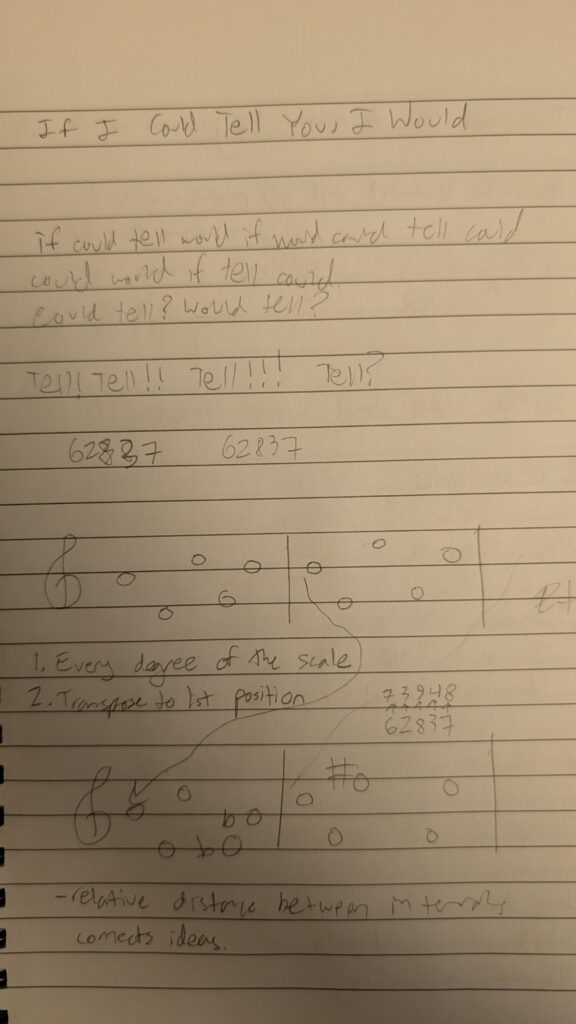 If I Could Tell You, I Would
if could tell would if would could tell could
could would if tell could
Could tell? Would tell?
Tell! Tell!! Tell!!! Tell?
62837 62837
1. Every degree of the scale
2. Transpose to 1st position
73948
62837
- relative distance between intervals
connects ideas.